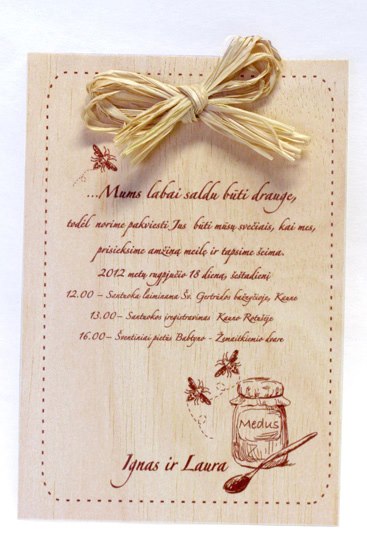 ...Mums labai saldu būti drauge,
todėl norime pakviesti Jus būti mūsų svečiais, kai mes,
prisieksime amžiną meilę ir tapsime šeima.
2012 metų rugpjūčio 18 dieną, šeštadienį
12.00 – Santuoka laiminama Šv. Gertrūdos bažnyčioje, Kaune
13.00 – Santuokos įregistravimas Kauno Rotušėje
16.00 – Šventiniai pietūs Babtyno - Žemaitkiemio dvare
Medus
Ignas ir Laura